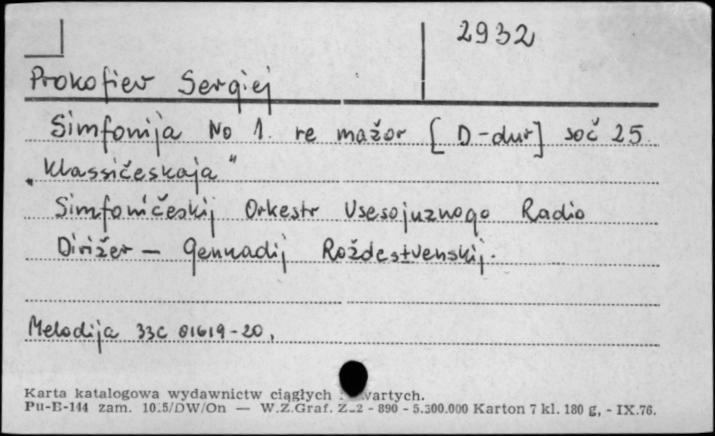 2932
Prokofiev Sergiej
Simfonija No 1. re mažor [D-dur] soč 25.
„Klassičeskaja"
Simfoničeskij Orkestr Vsesojuznogo Radio
Dirižer — Gennadij Roždestvenskij.
Melodija 33C 01619-20.
Karta katalogowa wydawnictw ciągłych
Pu-B-144 zam. 10.5/DW/On — W.Z.Graf. Z-2 - 890 - 5.300.000 Karton 7 kl. 180 g, - IX.76.